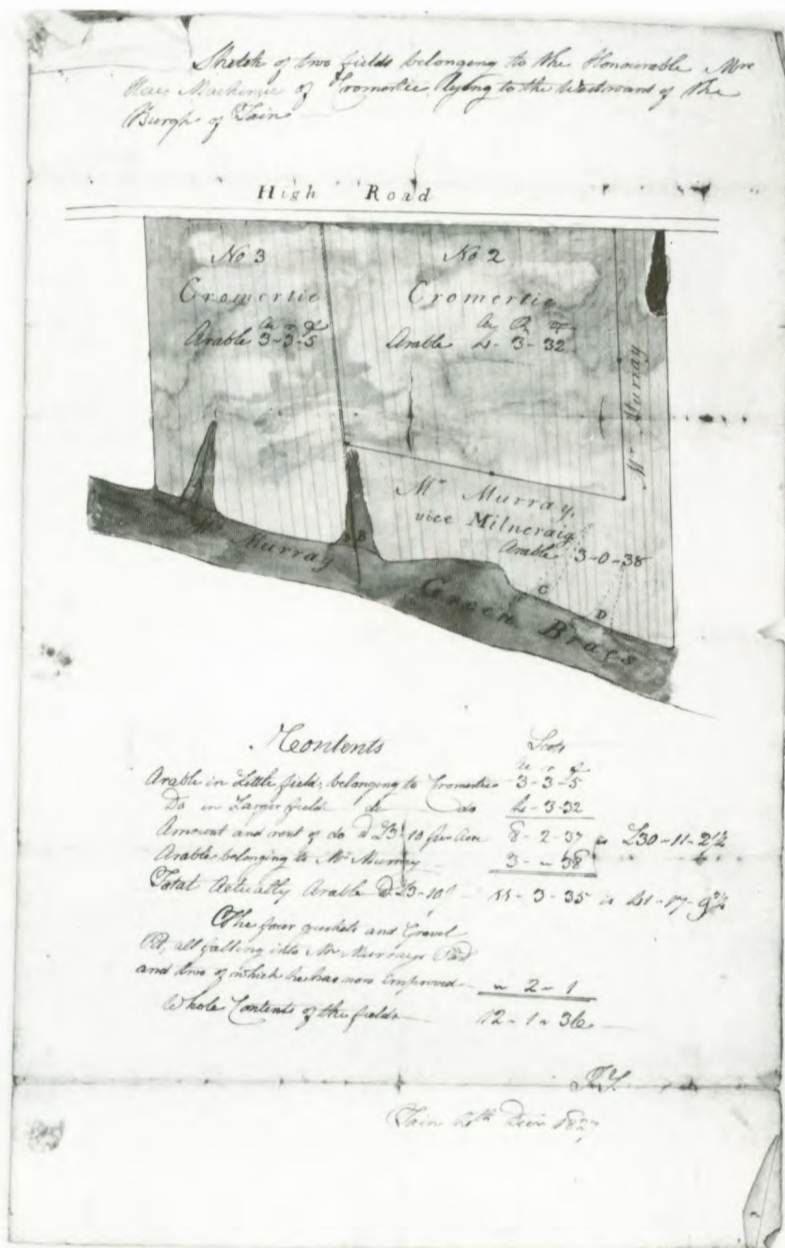 Sketch of two fields belonging to the Honourable Mrs
Hay Mackenzie of Cromertie lying to the Westward of the
Burgh of Tain
High Road
No 3
Cromertie
Ac R F
Arable 3-3-5
No 2
Cromertie
Ac R F
Arable 4-3-32
Mr Murray
Mr Murray,
vice Milncraig
Arable 3-0-38
Mr Murray
B
C
D
Green Braes
Contents
Scots
Ac R F
Arable in Little field, belonging to Cromertie 3-3-5
Do in Larger field do do 4-3-32
Amount and rent of do @ £3-10 per Acre 8-2-37 is £30-11-2½
Arable belonging to Mr Murray 3-"-38
Total Actually Arable @ £3-10 11-3-35 is 41-17-9¾
The four gushets and Gravel
Pit, all falling into Mr Murrays
and two of which he has now improved " 2-1
Whole Contents of the fields 12-1-36
Tain Decr 1827